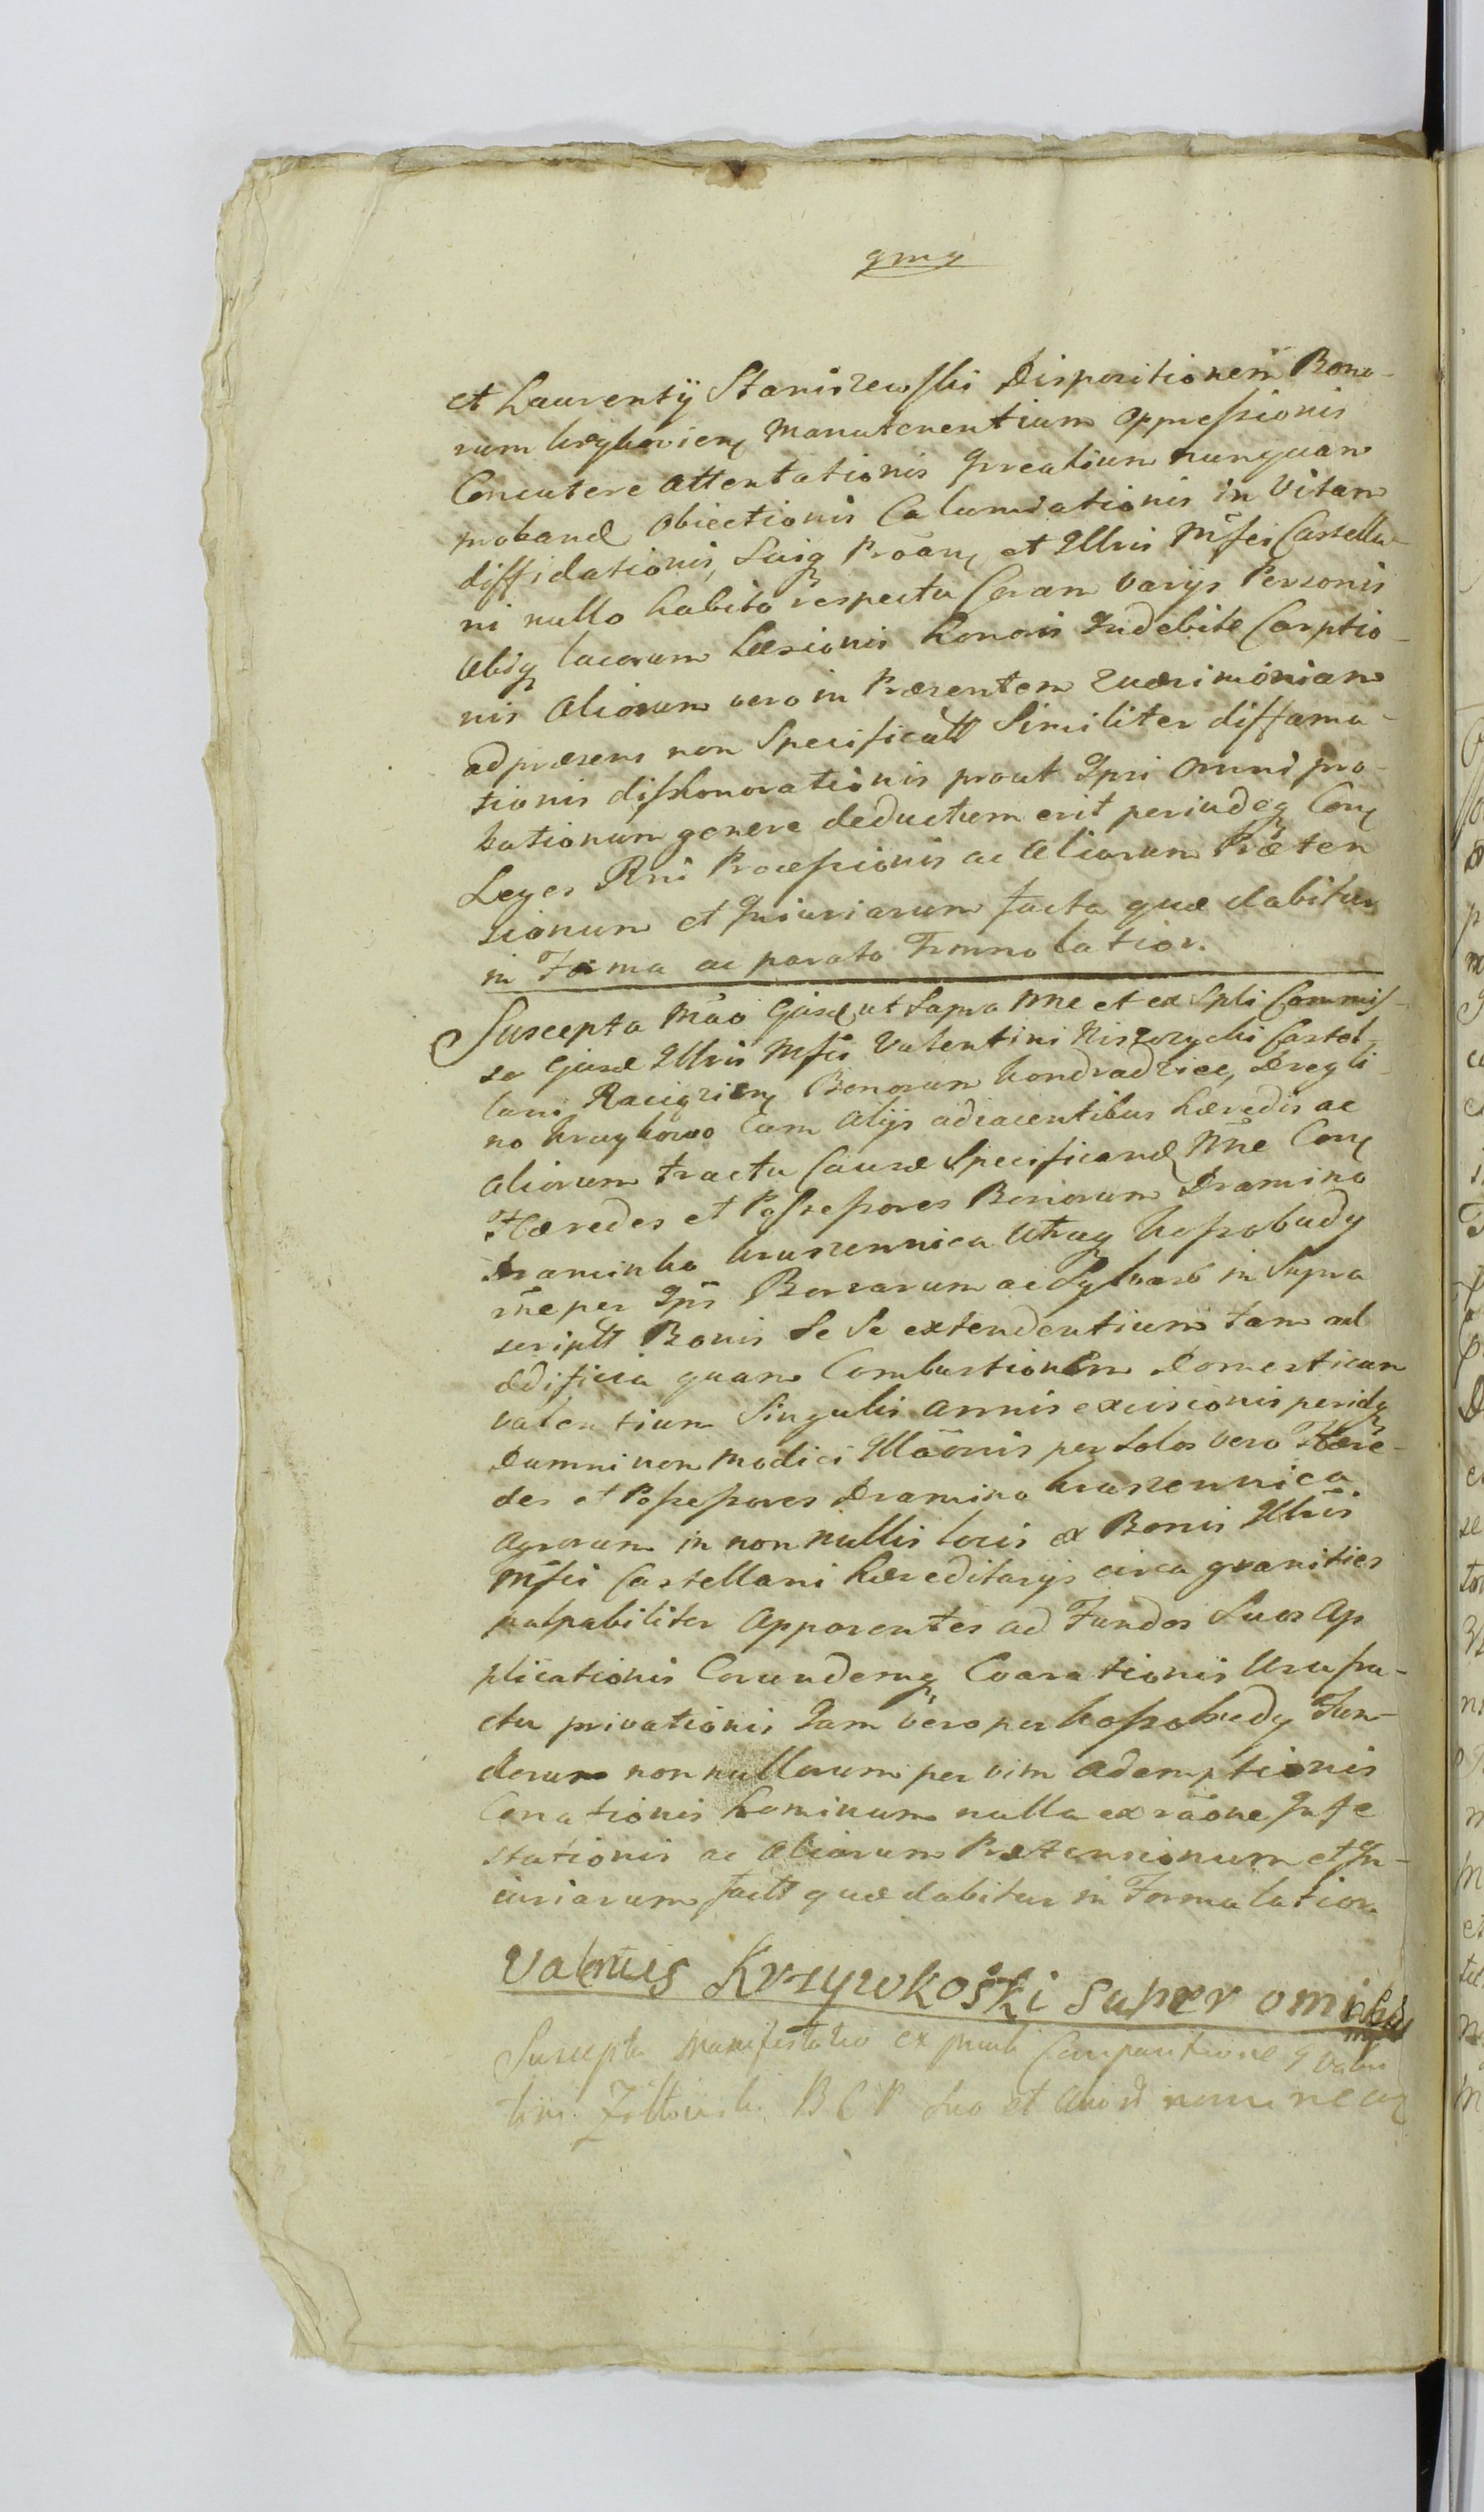 et Laurentÿ Staniszewski Dispositionem Bono-
rum Manutenentium oppressionis
attentationis nunquam
proband obiectionis Calumniationis in Vitam
diffidationis, Suiq et Illris Mfci Castella-
ni nullo habito respectu Coram varijs Personis
locorum læsionis honoris Indebite Carptio-
nis aliorum vero in Præsentem Quærimoniam
ad præsens non Specificatt Similiter diffama-
tionis dishonorationis prout Ipsi omni pro-
bationum genere deductum erit perindeq Con
Leges Rni Processionis ac aliorum Præten
sionum et Iniuriarum facta quæ dabitur
in Forma ac parato Termno latior.
Suscepta Mão ut Supra Nne et ex Spli Commis-
so Illris Mfci Valentini Niszczycki Castel-
lani Bonorum Dregli-
no Cum alijs adiacentibus hæredis ac
aliorum tractu Causæ Specificand Nne Con
Hæredes et Possessores Bonorum Dramino
Draminko kruszewnica kossobudy
per Borrarum ac in Supra
scriptt Bonis Se Se extendentium tam ad
ædificia quam Combustionem Domesticam
valentium Singulis annis excisionis peridq
Damni non modici Illãonis per Solos vero Hære-
des et Possessores Dramino
agrorum in non nullis locis ex Bonis Illris
Mfci Castellani hæreditarijs circa granities
palpabiliter apparentes ad Fundos Suos ap
plicationis Eorundemq Coarationis Usufru-
ctu privationis Iam vero per kossobudy Fun-
dorum non nullorum per vim ademptionis
hominum nulla ex rãone Infe
stationis ac aliorum Prætensionum et In-
iuriarum factt quæ dabitur in Forma latior
Krzywkoski Super
Suscepta Manifestatio ex Comparitione
B C P Suo et nomine